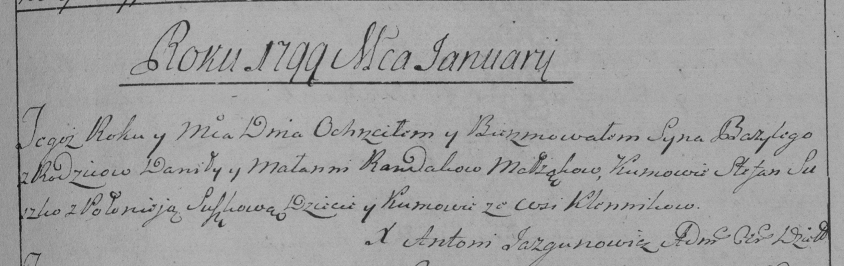 Roku 1799 Mca Januarij
Tegoż Roku y Mca Dnia Ochrzciłem y Bierzmowałem Syna Bazylego
z Rodzicow Daniły y Małanni Randakow Małżąkow, Kumowie Stefan Su
szko z Połonieją Suszkową Dziecie y Kumowie ze wsi Klennikow.
X Antoni Jazgunowicz Adm